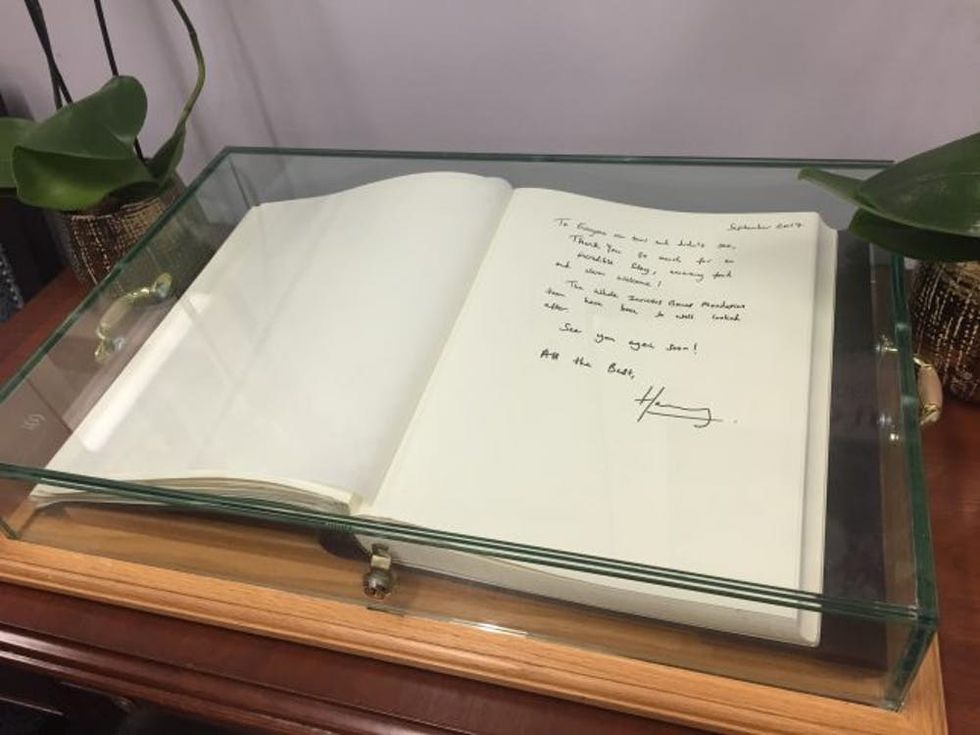 September 2017
To Everyone on tour and
Thank you so much for an
incredible stay, amazing food
and warm welcome!
The whole Invictus Games Foundation
team have been so well looked
after.
See you again soon!
All the Best,
Harry